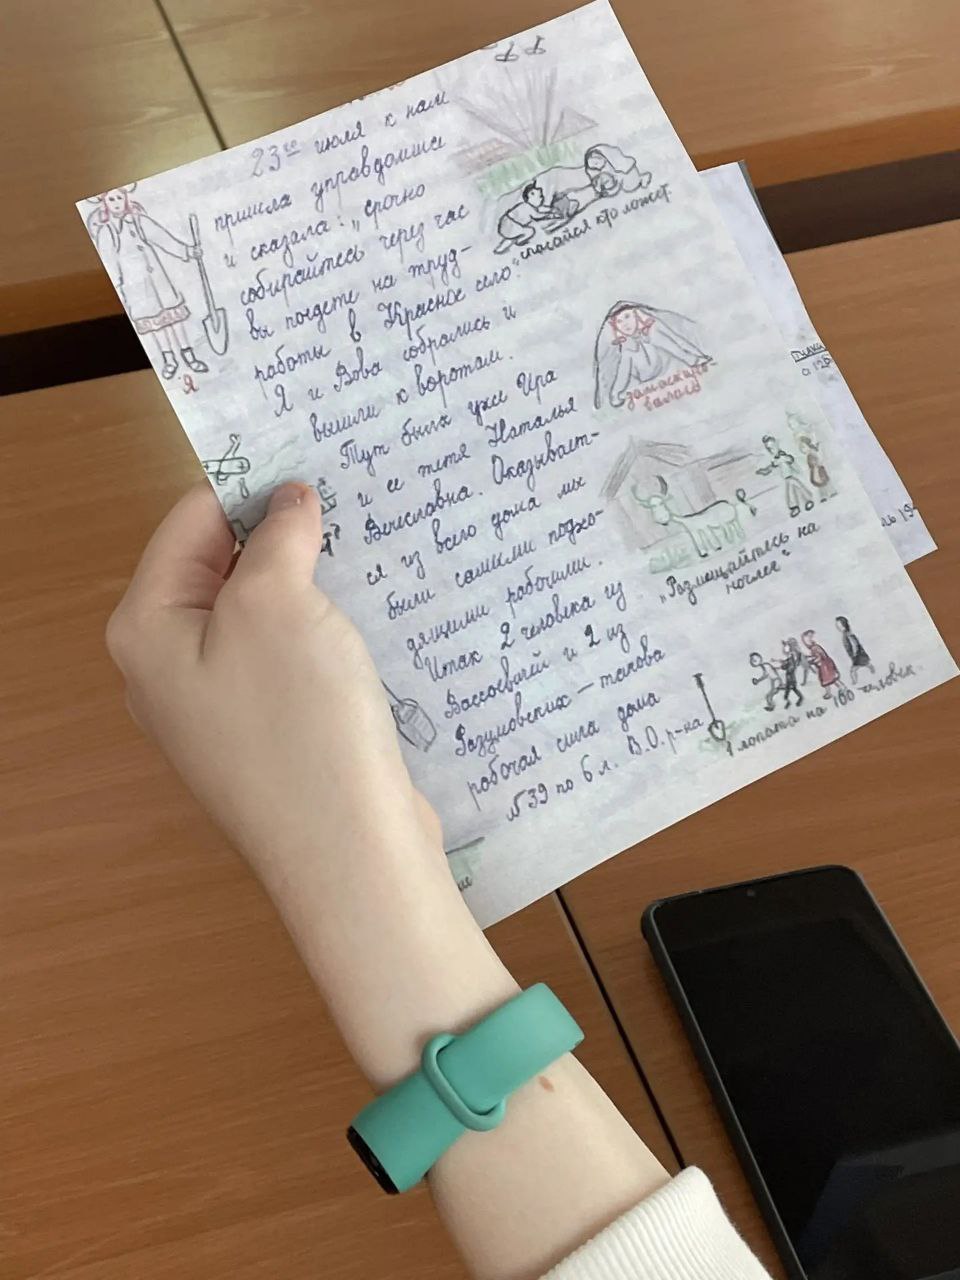 23го июля к нам
пришла управдомша
и сказала: „срочно
собирайтесь через час
вы поедете на труд-
работы в Красное село."
Я и Вова собрались и
вышли к воротам.
Тут были уже Ира
и ее тетя Наталья
Вечеславна. Оказывает-
ся из всего дома мы
были самыми подхо-
дящими рабочими.
Итак 2 человека из
и 2 из
Разумовских – такова
рабочая сила дома
№39 по 6 л. В.О. р-на
Я
спасайся кто может
замаскиро-
валась
„Размещайтесь на
ночлег"
1 лопата на 100 человек.